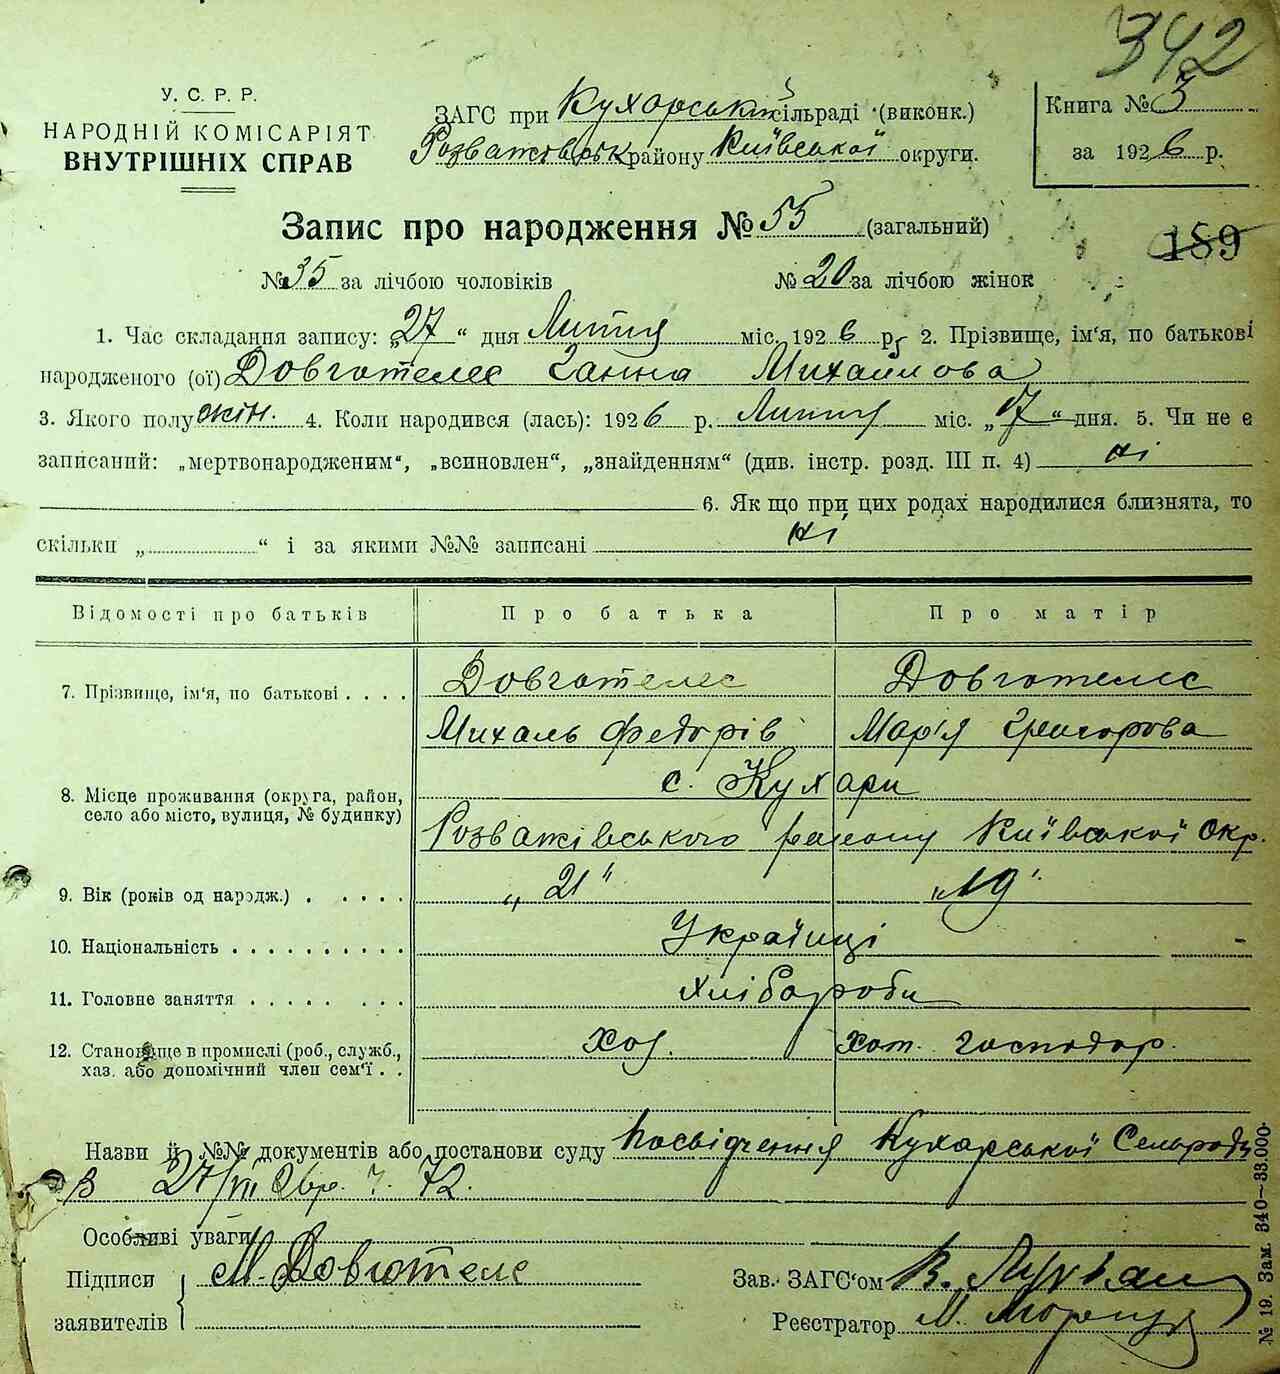 342
У. С. Р. Р.
НАРОДНІЙ КОМІСАРІЯТ
ВНУТРІШНІХ СПРАВ
ЗАГС при Кухарській сільраді (виконк.)
Розважівськ району Київської округи.
Книга № 3
за 1926 р.
Запис про народження № 55 (загальний)
189
№ 35 за лічбою чоловіків № 20 за лічбою жінок
1. Час складання запису: „27“ дня Лютня міс. 1926 р. 2. Прізвище, ім'я, по батькові
народженого (ої) Довготелес Ганна Михайлова
3. Якого полу жін. 4. Коли народився (лась): 1926 р. Лютня міс. „17“ дня. 5. Чи не є
записаний: „мертвонародженим“, „всиновлен“, „знайденням“ (див. інстр. розд. III п. 4) ні
6. Як що при цих родах народилися близнята, то
скільки „ “ і за якими №№ записані ні
Відомості про батьків Про батька Про матір
7. Прізвище, ім'я, по батькові . . . . Довготелес Довготелес
Михаль Федорів Мар'я Григорова
8. Місце проживання (округа, район, село або місто, вулиця, № будинку) с. Кухари
Розважівського району Київської Окр.
9. Вік (років од народж.) . . . . . „21“ „19“
10. Національність . . . . . . . . . . Українці -
11. Головне заняття . . . . . . . . Хлібороби
12. Становище в промислі (роб., служб., Хоз. хат. господар.
хаз. або допомічний член сем'ї . .
Назви й №№ документів або постанови суду Посвідчення Кухарської Сельради
В 27/VII 26р. 72.
Особливі уваги
Підписи М. Довготелес
заявителів
Зав. ЗАГС'ом В.
Реєстратор М.
№ 19. Зам. 340—33.000.